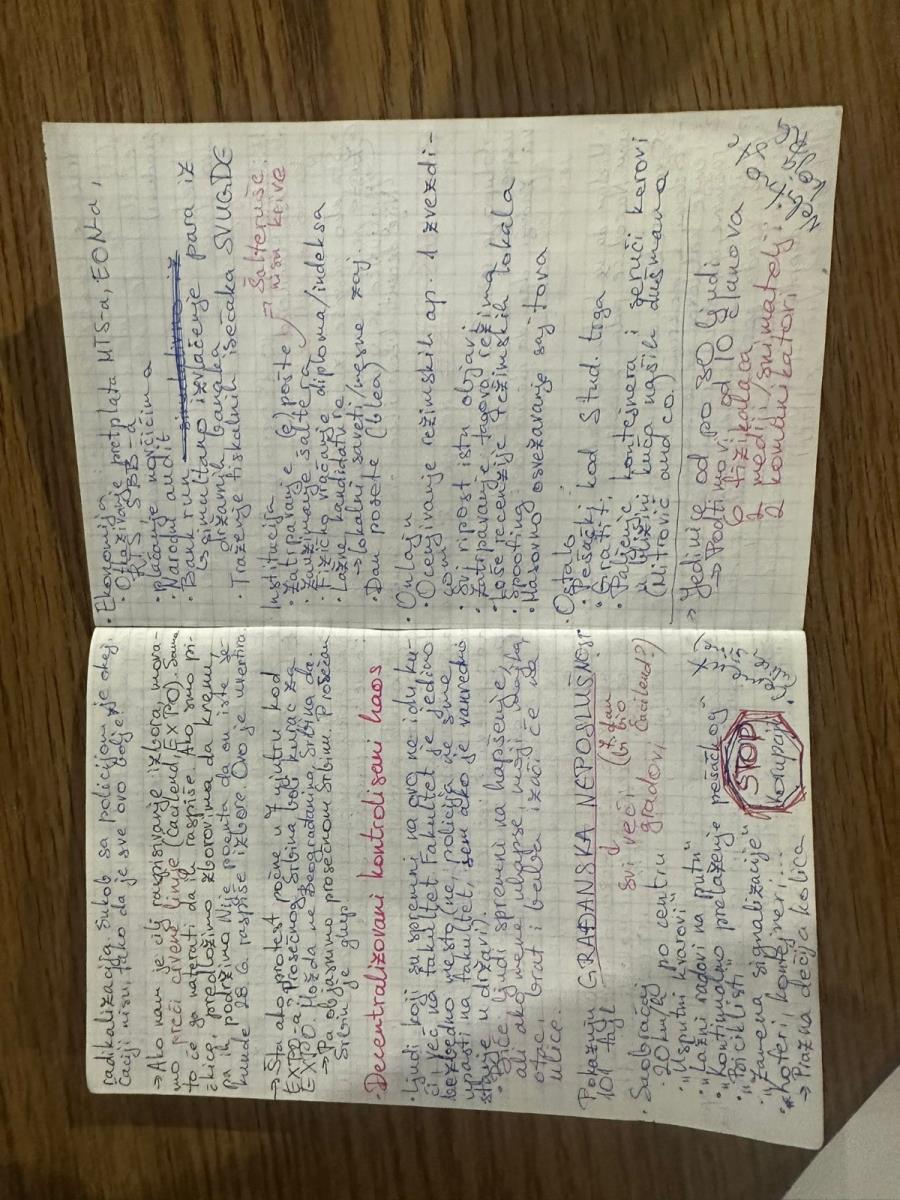 radikalizacija, sukob sa policijom je okej,
Čaciji nisu, tako da je sve ovo bolje!
→ Ako nam je cilj raspisivanje izbora, mora-
mo preći crvene linije (Ćacilend, EXPO). Samo
to će ga naterati da ih raspiše. Ako smo pi-
čkice, predložimo zborovima da krenu,
pa ih podržimo. Nije poenta da on iste se-
kunde 28. 6. raspiše izbore. Ovo je uvertira.
→ Šta ako protest počne u 7 ujutru kod
EXPO-a? Prosečnog Srbina boli kurac za
EXPO. Možda ne Beograđanina, Srbina da.
→ Pa objasnimo prosečnom Srbinu. Prosečan
Srbin je glup
• Decentralizovani kontrolisani haos
• Ljudi koji su spremni na ovo ne idu ku-
ći već na fakultet. Fakultet je jedino
bezbedno mesto (ne, policija ne sme
upasti na fakultet, sem ako je vanredno
stanje u državi).
• Biće ljudi spremni na hapšenje,
ali ako mene uhapse, moji majka,
otac, brat i beba izaći će na
ulice.
Pokazuju
101 dalje
GRAĐANSKA NEPOSLUŠNOST
↓
svi veći
gradovi
Saobraćaj
• 20km/h po centru
• "Usputni kvarovi"
• "Lažni radovi na putu"
• "Kontinuirano prelaženje pešačkog"
• "Biciklisti"
• "Zamena signalizacije"
• "Koferi, kontejneri...
→ Prazna dečija kolica
STOP
korupciji
• Ekonomija
• Otkazivanje pretplata MTS-a, EON-a,
RTS, SBB-a
• Plaćanje novčićima
• Narodni audit
• Bank run
↳ simultano izvlačenje para iz
državnih banaka
• Traženje fiskalnih isečaka SVUGDE
Institucija
• Zatrpavanje (e)pošte
• Zauzimanje saltera → Šalteruše
nisu krive
• Fizičko vraćanje diploma/indeksa
• Lažne kandidature
→ lokalni saveti/mesne zaj.
• Dan posete (blea)
Onlajn
• Ocenjivanje režimskih ap. 1 zvezdi-
com
• Svi ripost istu objavu
• Zatrpavanje tagovoima režima
• Loše recenzije režimskih lokala
• Spoofing
• Masovno osvežavanje sajtova
Ostalo
• Pešački kod Stud. trga
• Grafiti
• Paljenje kontejnera i seruči kerovi
u blizini kuća naših dušmana
(Mitrović and co.)
→ Jedinice od po 30 ljudi
→ Podtimovi od 10 članova
6 fizikalaca
2 medij/snimatelj
2 komunikatori